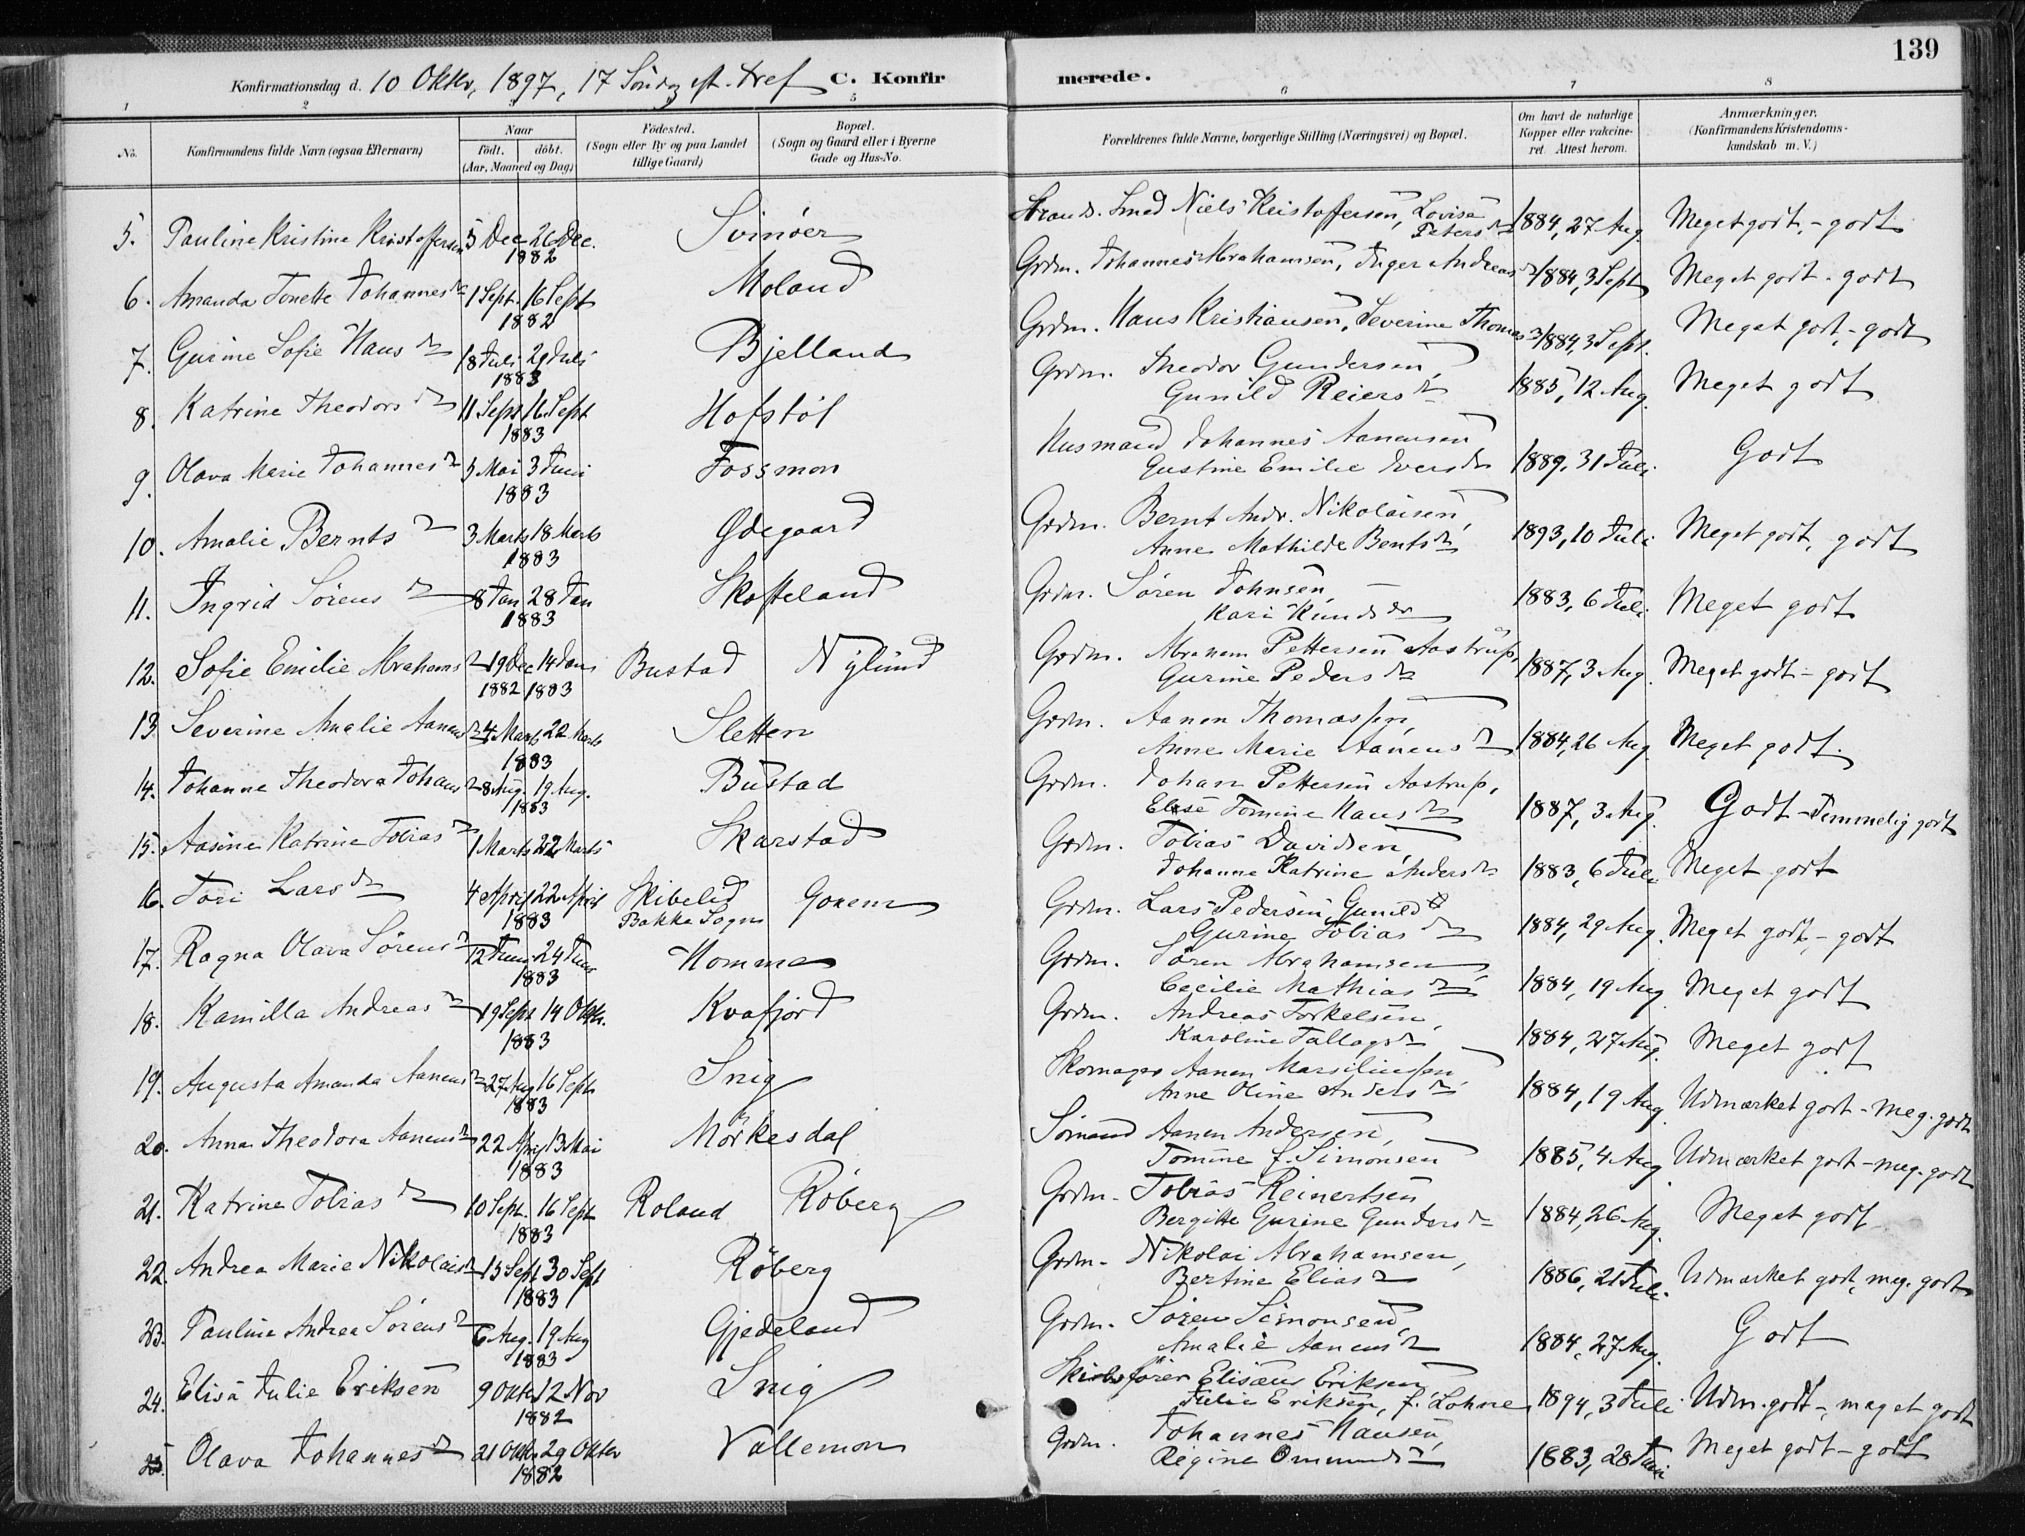 139
Konfirmationsdag d. 10 Oktbr, 1897, 17 Søndag eft. tref C. Konfirmerede.
1 2 3 5 6 7 8
No. Konfirmandens fulde Navn (ogsaa Efternavn) Naar født. døbt. (Aar, Maaned og Dag) Fødested. (Sogn eller By og paa Landet tillige Gaard) Bopæl. (Sogn og Gaard eller i Byerne Gade og Hus-No. Forældrenes fulde Navne, borgerlige Stilling (Næringsvei) og Bopæl. Om havt de naturlige Kopper eller vaccineret. Attest herom. Anmærkninger. (Konfirmandens Kristendomskundskab m. V.)
5. Pauline Kristine Kristoffersen 5 Dec 26 Dec. 1882 Svinøer Smed Niels Kristoffersen, Lovise Petersd. 1884, 27 Aug. Meget godt, - godt
6. Amanda Tonette Johannesd. 1 Sept. 16 Sept 1882 Moland Grdm. Johannes Abrahamsen, Inger Andreasd. 1884, 3 Sept Meget godt - godt
7. Gurine Sofie Hansd. 18 Juli 29 Juli 1883 Bjelland Grdm. Hans Kristiansen, Severine Thomasd. 1884, 3 Sept. Meget godt, - godt
8. Katrine Theodorsd. 11 Sept 16 Sept 1883 Hofstøl Grdm. Theodor Gundersen, Gunild Reiersd. 1885, 12 Aug. Meget godt
9. Olava Marie Johannesd. 5 Mai 3 Juni 1883 Fossmon Husmand Johannes Aanensen Gustine Emilie Iversd. 1889, 31 Juli Godt
10. Amalie Berntsd. 3 Marts 18 Marts 1883 Ødegaard Grdm. Bernt Andr. Nikolaisen, Anne Mathilde Bentsd. 1893, 10 Juli Meget godt, godt
11. Ingrid Sørensd. 8 Jan 28 Jan 1883 Skofteland Grdm. Søren Johnsen, Kari Knudsdr 1883, 6 Juli Meget godt
12. Sofie Emilie Abrahamsd. 19 Dec 1882 14 Jan 1883 Bustad Nylund Grdm. Abraham Pettersen Aastrup, Gurine Pedersd. 1887, 3 Aug. Meget godt - godt
13 Severine Amalie Aanensd. 4 Marts 22 Marts 1883 Sletten Grdm. Aanen Thomassen, Anne Marie Aanensd. 1884, 26 Aug Meget godt.
14. Johanne Theodora Johansd. 8 Aug. 19 Aug. 1883 Bustad Grdm. Johan Pettersen Aastrup, Elise Tomine Hansd. 1887, 3 Aug. Godt - Temmelig godt
15. Aasine Katrine Tobiasd. 1 Marts 22 Marts Skarstad Grdm. Tobias Davidsen, Johanne Katrine Andersd. 1883, 6 Juli Meget godt
16. Tori Larsd. 4 April 22 April 1883 Skibelid Bakke Sogn Grdm. Lars Pedersen, Gunild Gurine Tobiasd. 1884, 29 Aug. Meget godt, - godt
17. Ragna Olava Sørensd. 12 Juni 24 Juni 1883 Homme Grdm. Søren Abrahamsen, Cecilie Mathiasd. 1884, 19 Aug Meget godt
18. Kamilla Andreasd. 19 Sept 14 Oktbr. 1883 Kvafjord Grdm. Andreas Torkelsen, Karoline Tallagsd. 1884, 27 Aug. Meget godt
19. Augusta Amanda Aanensd. 27 Aug 16 Sept 1883 Snig Skomager Aanen Marsiliussen, Anne Oline Andersd. 1884, 19 Aug Udmærket godt - meg. godt
20. Anna Theodora Aanensd. 22 April 13 Mai 1883 Mørkesdal Sømand Aanen Andersen, Tomine f. Simonsen 1885, 4 Aug Udmærket godt - meg. godt
21. Katrine Tobiasd. 10 Sept. 16 Sept 1883 Roland Røberg Grdm. Tobias Reinertsen Bergitte Gurine Gundersd. 1884, 26 Aug. Meget godt
22. Andrea Marie Nikolaisd. 15 Sept 30 Sept 1883 Røberg Grdm. Nikolai Abrahamsen, Bertine Eliasd. 1886, 21 Juli Udmærket godt, meg. godt
23. Pauline Andrea Sørensd. 6 Aug. 19 Aug 1883 Gjedeland Grdm. Søren Simonsen, Amalie Aanensd. 1884, 27 Aug. Godt
24. Elisa Julie Eriksen 9 Oktbr 12 Nov 1882 Snig Skibsfører Elisæus Eriksen Julie Eriksen, f. Lohne 1894, 3 Juli Udm. godt -, meget godt
25. Olava Johannesd. 21 Oktbr 29 Oktbr 1882 Vallemon Grdm. Johannes Hansen, Regine Ommundsd. 1883, 28 Juni Meget godt - godt